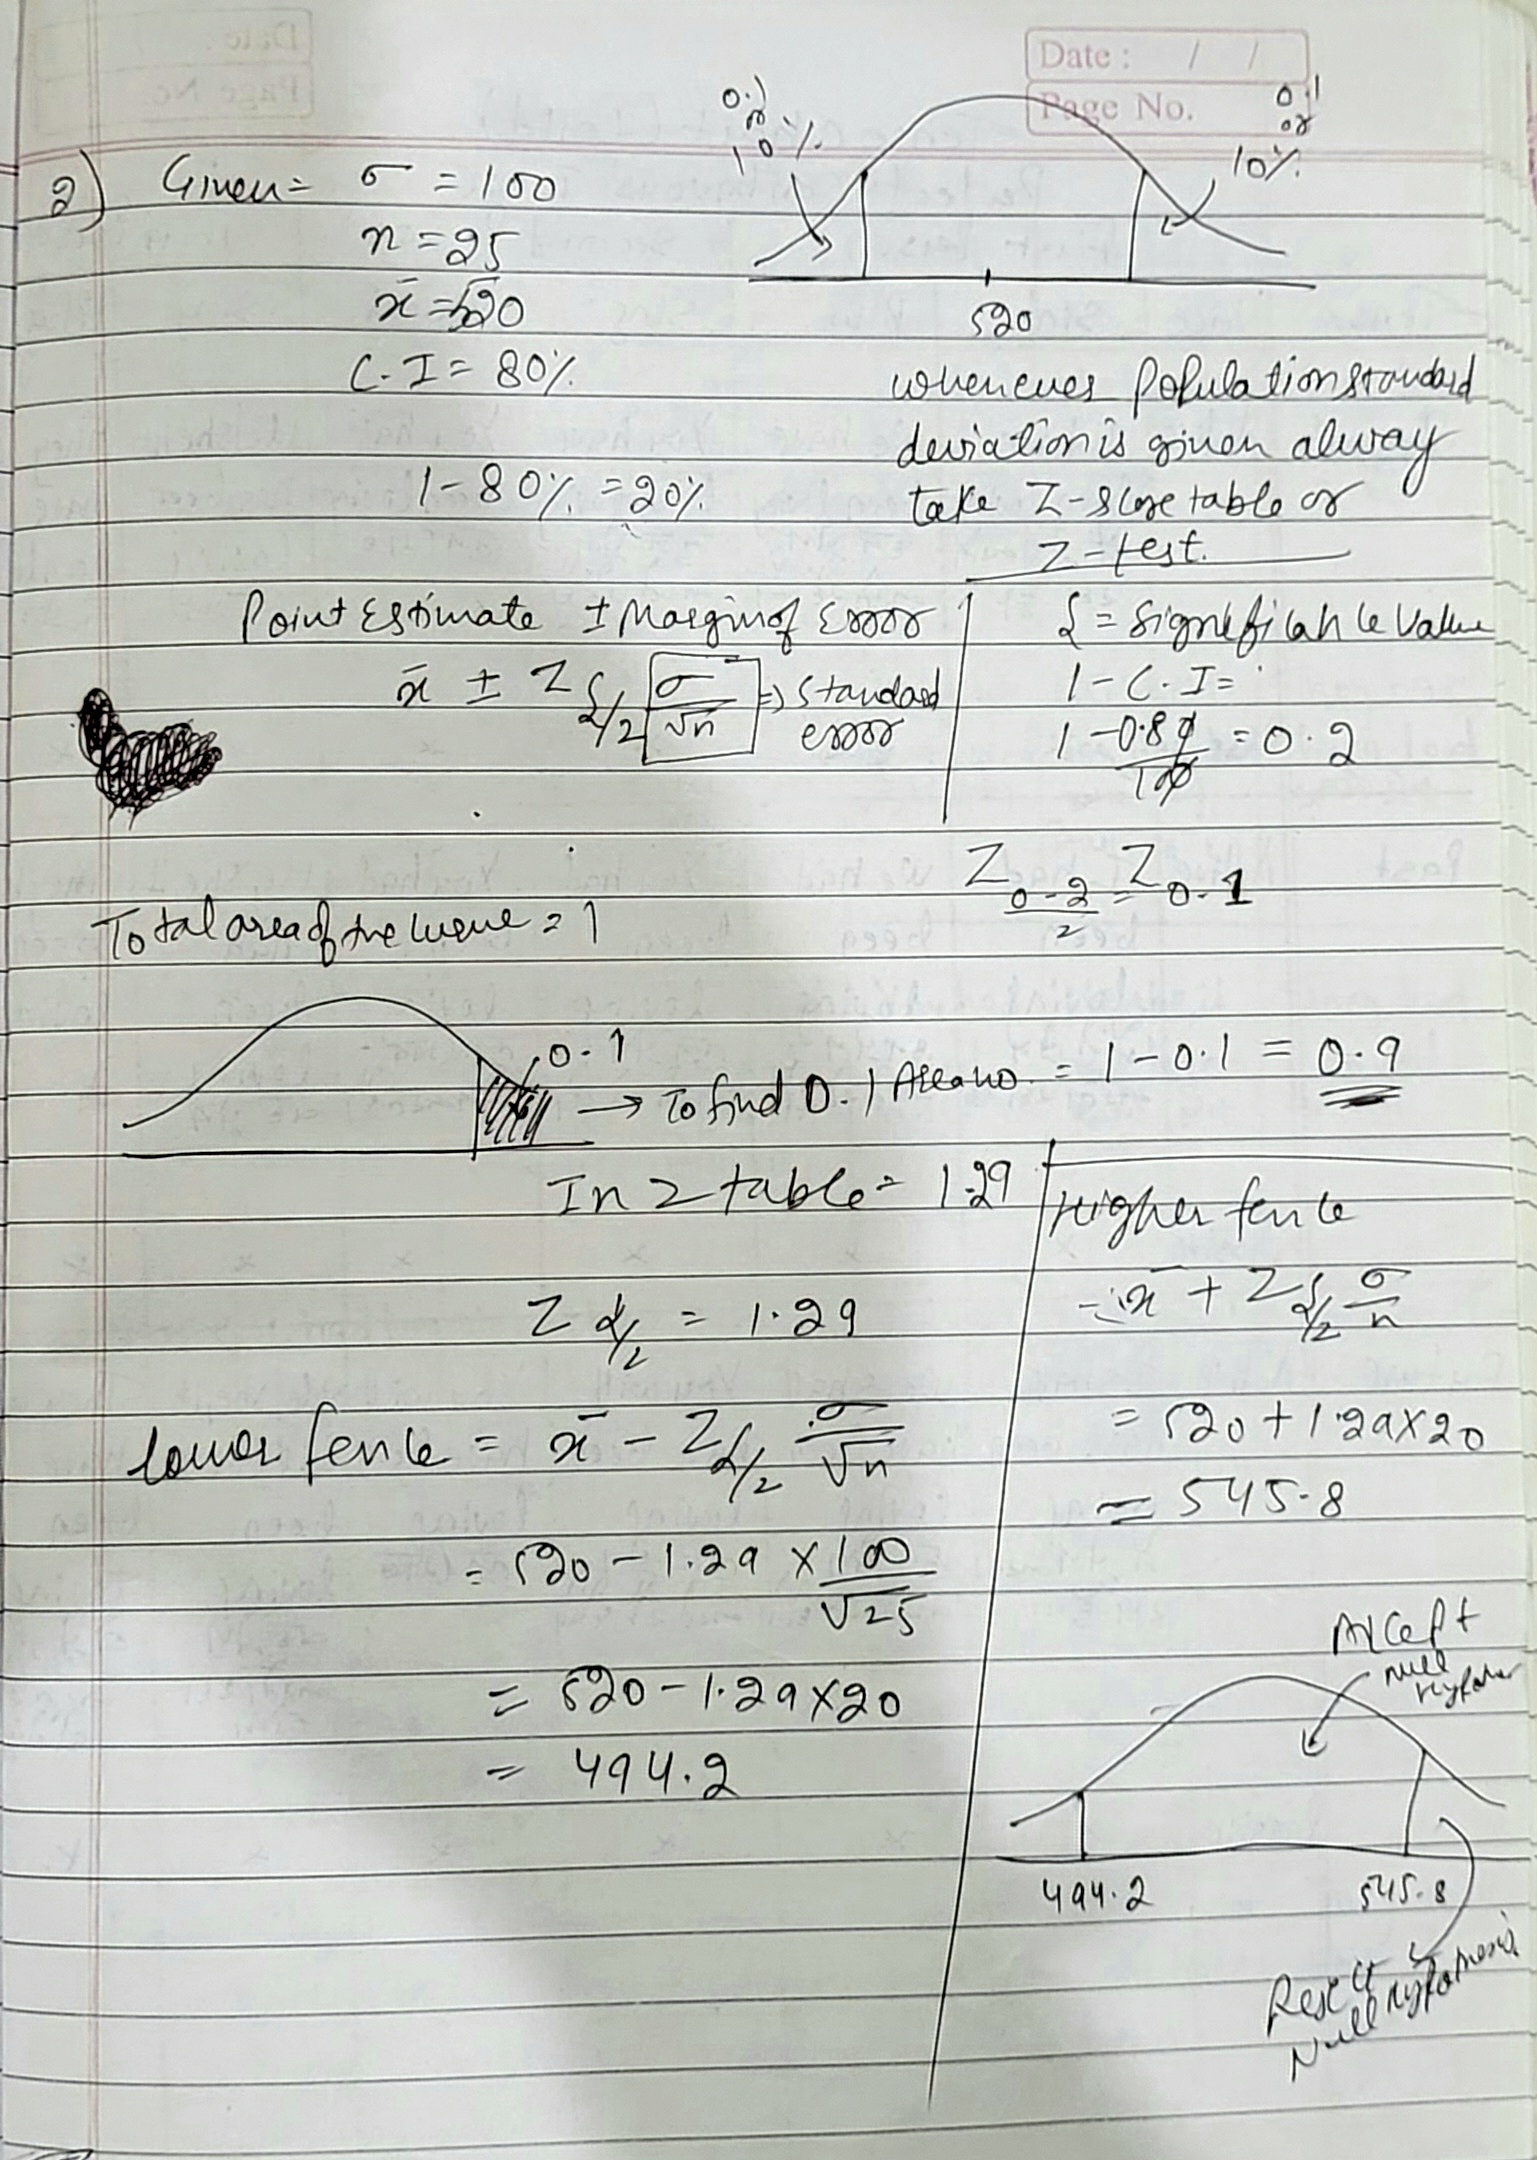 Date : / /
Page No.
0.1
or
10%
0.1
or
10%
2) Given = σ = 100
n = 25
x̄ = 520
520
C.I = 80%
whenever Population standard
deviation is given alway
take Z-score table or
Z-test.
1 - 80% = 20%
Point Estimate ± Margin of Error
x̄ ± Z α/2 σ/√n ⇒ Standard
error
α = Significance Value
1 - C.I =
1 - 0.80/100 = 0.2
Z 0.2/2 = Z 0.1
Total area of the curve = 1
0.1
→ To find 0.1 Area no. = 1 - 0.1 = 0.9
In Z table = 1.29
Z α/2 = 1.29
lower fence = x̄ - Z α/2 σ/√n
= 520 - 1.29 × 100/√25
= 520 - 1.29 × 20
= 494.2
Higher fence
= x̄ + Z α/2 σ/n
= 520 + 1.29 × 20
= 545.8
Accept
null
494.2
545.8
Reject
Null Hypothesis